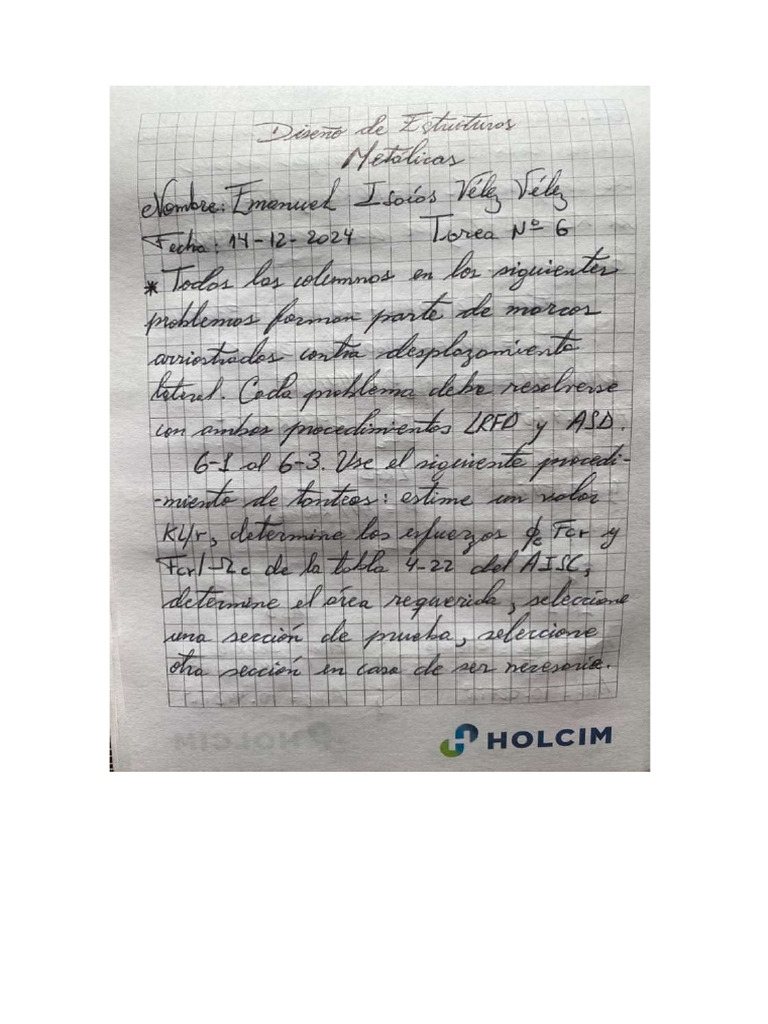 Diseño de Estructuras
Metálicas
Nombre: Emanuel Isaías Vélez Vélez
Fecha: 14-12-2024 Tarea Nº 6
* Todas las columnas en los siguientes
problemas forman parte de marcos
arriostrados contra desplazamiento
lateral. Cada problema debe resolverse
con ambos procedimientos LRFD y ASD.
6-1 al 6-3. Use el siguiente procedi-
-miento de tanteos: estime un valor
KL/r, determine los esfuerzos ϕc Fcr y
Fcr/Ωc de la tabla 4-22 del AISC,
determine el área requerida, seleccione
una sección de prueba, seleccione
otra sección en caso de ser necesario.
HOLCIM
HOLCIM